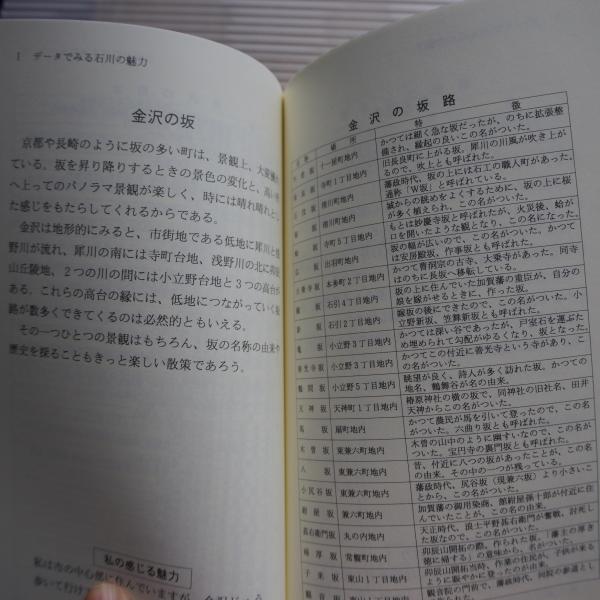 1 データでみる石川の魅力
金沢の坂
京都や長崎のように坂の多い町は、景観上、大変優れ
ている。坂を昇り降りするときの景色の変化と、高い所
へ上ってのパノラマ景観が楽しく、時には晴れ晴れとし
た感じをもたらしてくれるからである。
金沢は地形的にみると、市街地である低地に犀川と浅
野川が流れ、犀川の南には寺町台地、浅野川の北に卯辰
山丘陵地、2つの川の間には小立野台地と3つの高台が
ある。これらの高台の縁には、低地につながっていく坂
路が数多くできてくるのは必然的ともいえる。
その一つひとつの景観はもちろん、坂の名称の由来や
歴史を探ることもきっと楽しい散策であろう。
私の感じる魅力
私は市の中心部に住んでいますが、
歩いて行け
金沢の坂路
場所 特徴
十一屋町地内 かつては細く急な坂だったが、のちに拡張整
備され、縁起の良いこの名がついた。
寺町1丁目地内 旧長良町に上がる坂。犀川の川風が吹き上が
るので、吹上とも呼ばれた。
清川町地内 藩政時代、坂の上には石工の職人町があった。
通称「W坂」と呼ばれている。
清川町地内 城からの眺めをよくするために、坂の上に桜
が多く植えられ、この名がついた。
寺町5丁目地内 もとは妙慶寺坂と呼ばれたが、火災後、蛤が
口を開いたような観となり、この名になった。
出羽町地内 坂の幅が広いので、この名がついた。かつて
は安房殿坂、作事坂とも呼ばれた。
本多町2丁目地内 かつて曹洞宗の古寺、大乗寺があった。同寺
はのちに長坂へ移転している。
石引4丁目地内 坂の上に住んでいた加賀藩の重臣が、自分の
娘を嫁がせるときに、作った坂。
石引2丁目地内 嫁坂の後にできたので、この名がついた。小
立野新坂、笠舞新坂とも呼ばれた。
亀坂 小立野3丁目地内 かつては深い谷であったが、戸室石を運ぶた
め埋められて勾配がゆるくなり、坂となった。
善光寺坂 小立野5丁目地内 かつてこの付近に善光寺という寺があり、こ
の名がついた。
鶴間坂 小立野5丁目地内 眺望が良く、詩人が多く訪れた坂。かつての
地名、鶴舞谷が名の由来。
天神坂 天神町1丁目地内 椿原神社の横の坂で、同神社の旧社名、田井
天神からこの名がついた。
馬坂 扇町地内 かつて農民が馬を引いて登ったので、この名
がついた。六曲り坂とも呼ばれた。
木曽坂 東兼六町地内 木曽の山中のように幽すいなので、この名が
ついた。宝円寺の裏門坂とも呼ばれた。
八坂 東兼六町地内 昔、付近に八つの坂があったことが、この名
の由来。その中の一つが残っている。
小尻谷坂 東兼六町地内 藩政時代、尻谷坂（現兼六坂）より小さいこ
とから、この名がついた。
紺屋坂 兼六町地内 加賀藩の御用染商、館紺屋孫十郎が付近に住
んでいたことが、この名の由来。
甚右衛門坂 丸の内地内 天正時代、浪士平野甚右衛門が奮戦、討死し
たなので、この名がついた。
帰厚坂 常盤町地内 卯辰山開拓の際、作られた坂。「藩主の厚き
徳に帰する」の意味から、名がついた。
子来坂 東山1丁目地内 卯辰山開拓当時、作業の住民が、子供が来る
ように賑やかに登ったのが由来。
観音坂 東山1丁目地内 観音院の門前で、藩政時代、同院の参道とし